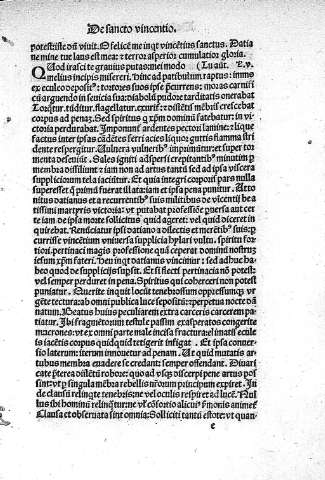 De sancto vincentio.
potestisse oñ viuit. O felicē me inqt vincētius sanctus. Datia
ne mine tue laus est mea: ⁊ terror asperior cumulatior gloria.
Quod irasci te grauius putas: mei modo
melius incipis misereri. Hinc ad patibulum raptus: immo
ex culeo deposit⁹: tortores suos ipse p̄currens: moras carnifi
cū arguendo in seuicia sua: diaboli pudore tarditatis onerabat
Torquꝰ, tiditur, flagellatur. exurit̃: ⁊ distētis mēbris crescebat
corpus ad penaȝ. Sed spiritus q xp̄m dominū fatebatur: in vi
ctoria perdurabat. Imponunt̃ ardentes pectori lamine: lique
factus inter ipsas cadētes ferri acies liquor: guttis flamma stri
dente respergitur. Vulnera vulnerib⁹ imprimūtur: ⁊ super tor
menta deseuiūt. Sales igniti adspersi crepitantib⁹ minutim p
membra dissiliunt: ⁊ iam non ad artus tantū sed ad ipsa viscera
suppliciorum tela iaciūtur. Et quia integri corporis pars nulla
superesset q̄ primū fuerat illata: iam et ipsa pena punitur. Atto
nitus datianus et a recurrentib⁹ suis militibus de vincentij bea
tissimi martyris victoria: vt putabat professiōe ꝓuersa aut cer
te iam de ipsa morte sollicitus quid ageret: vel quid diceret in
quirebat. Renūciatur ipsi datiano a dilectis et meritē⁹ suis: p
currisse vincētium vniuersa supplicia hylari vultu. spiritu for
tiori. pertinaci magis professione quā ceperat domini nostrum
iesum xp̄m fateri. Heu inqt datianus vincimur: sed adhuc ha
beo quod de supplicijs supsit. Et si flecti pertinacia nō potest:
vel semper perduret in pena. Spiritus qui coherceri non potest
puniatur. Querite inquit locū tenebrosum oppressumqȝ ve
gēte tectura: ab omni publica luce sepositū: ꝑpetua nocte dā
natum. Beatus huius peculiarem extra carceris carcerem pa
tiatur. Ibi fragmētorum testule passim exasperatos congerite
mucrones: vt ex omni parte male incisa fractura: elimatis ēculi
eis iacētis corpus quidquid retigerit infigat. Et ipsa conuer
sio laterum: iterum innouetur ad penam. Ut quid mutatis ar
tubus membra euadere se credant: semper offendant. Diuari
cate p̄terea distētis robore: quo ad vsqȝ discerpi pene artus pos
sint: vt p singula mēbra rebellis nr̄orum principum expiret. In
de clausū relinqte tenebris: ne vel oculis respiret ad lucē. Nul
lus ibi hominū relinquat̃: ne vl' cōsortio alicui⁹ p̄monis animet̃.
Clausa et obseruata sint omnia: Solliciti tantū estote: vt quan
e